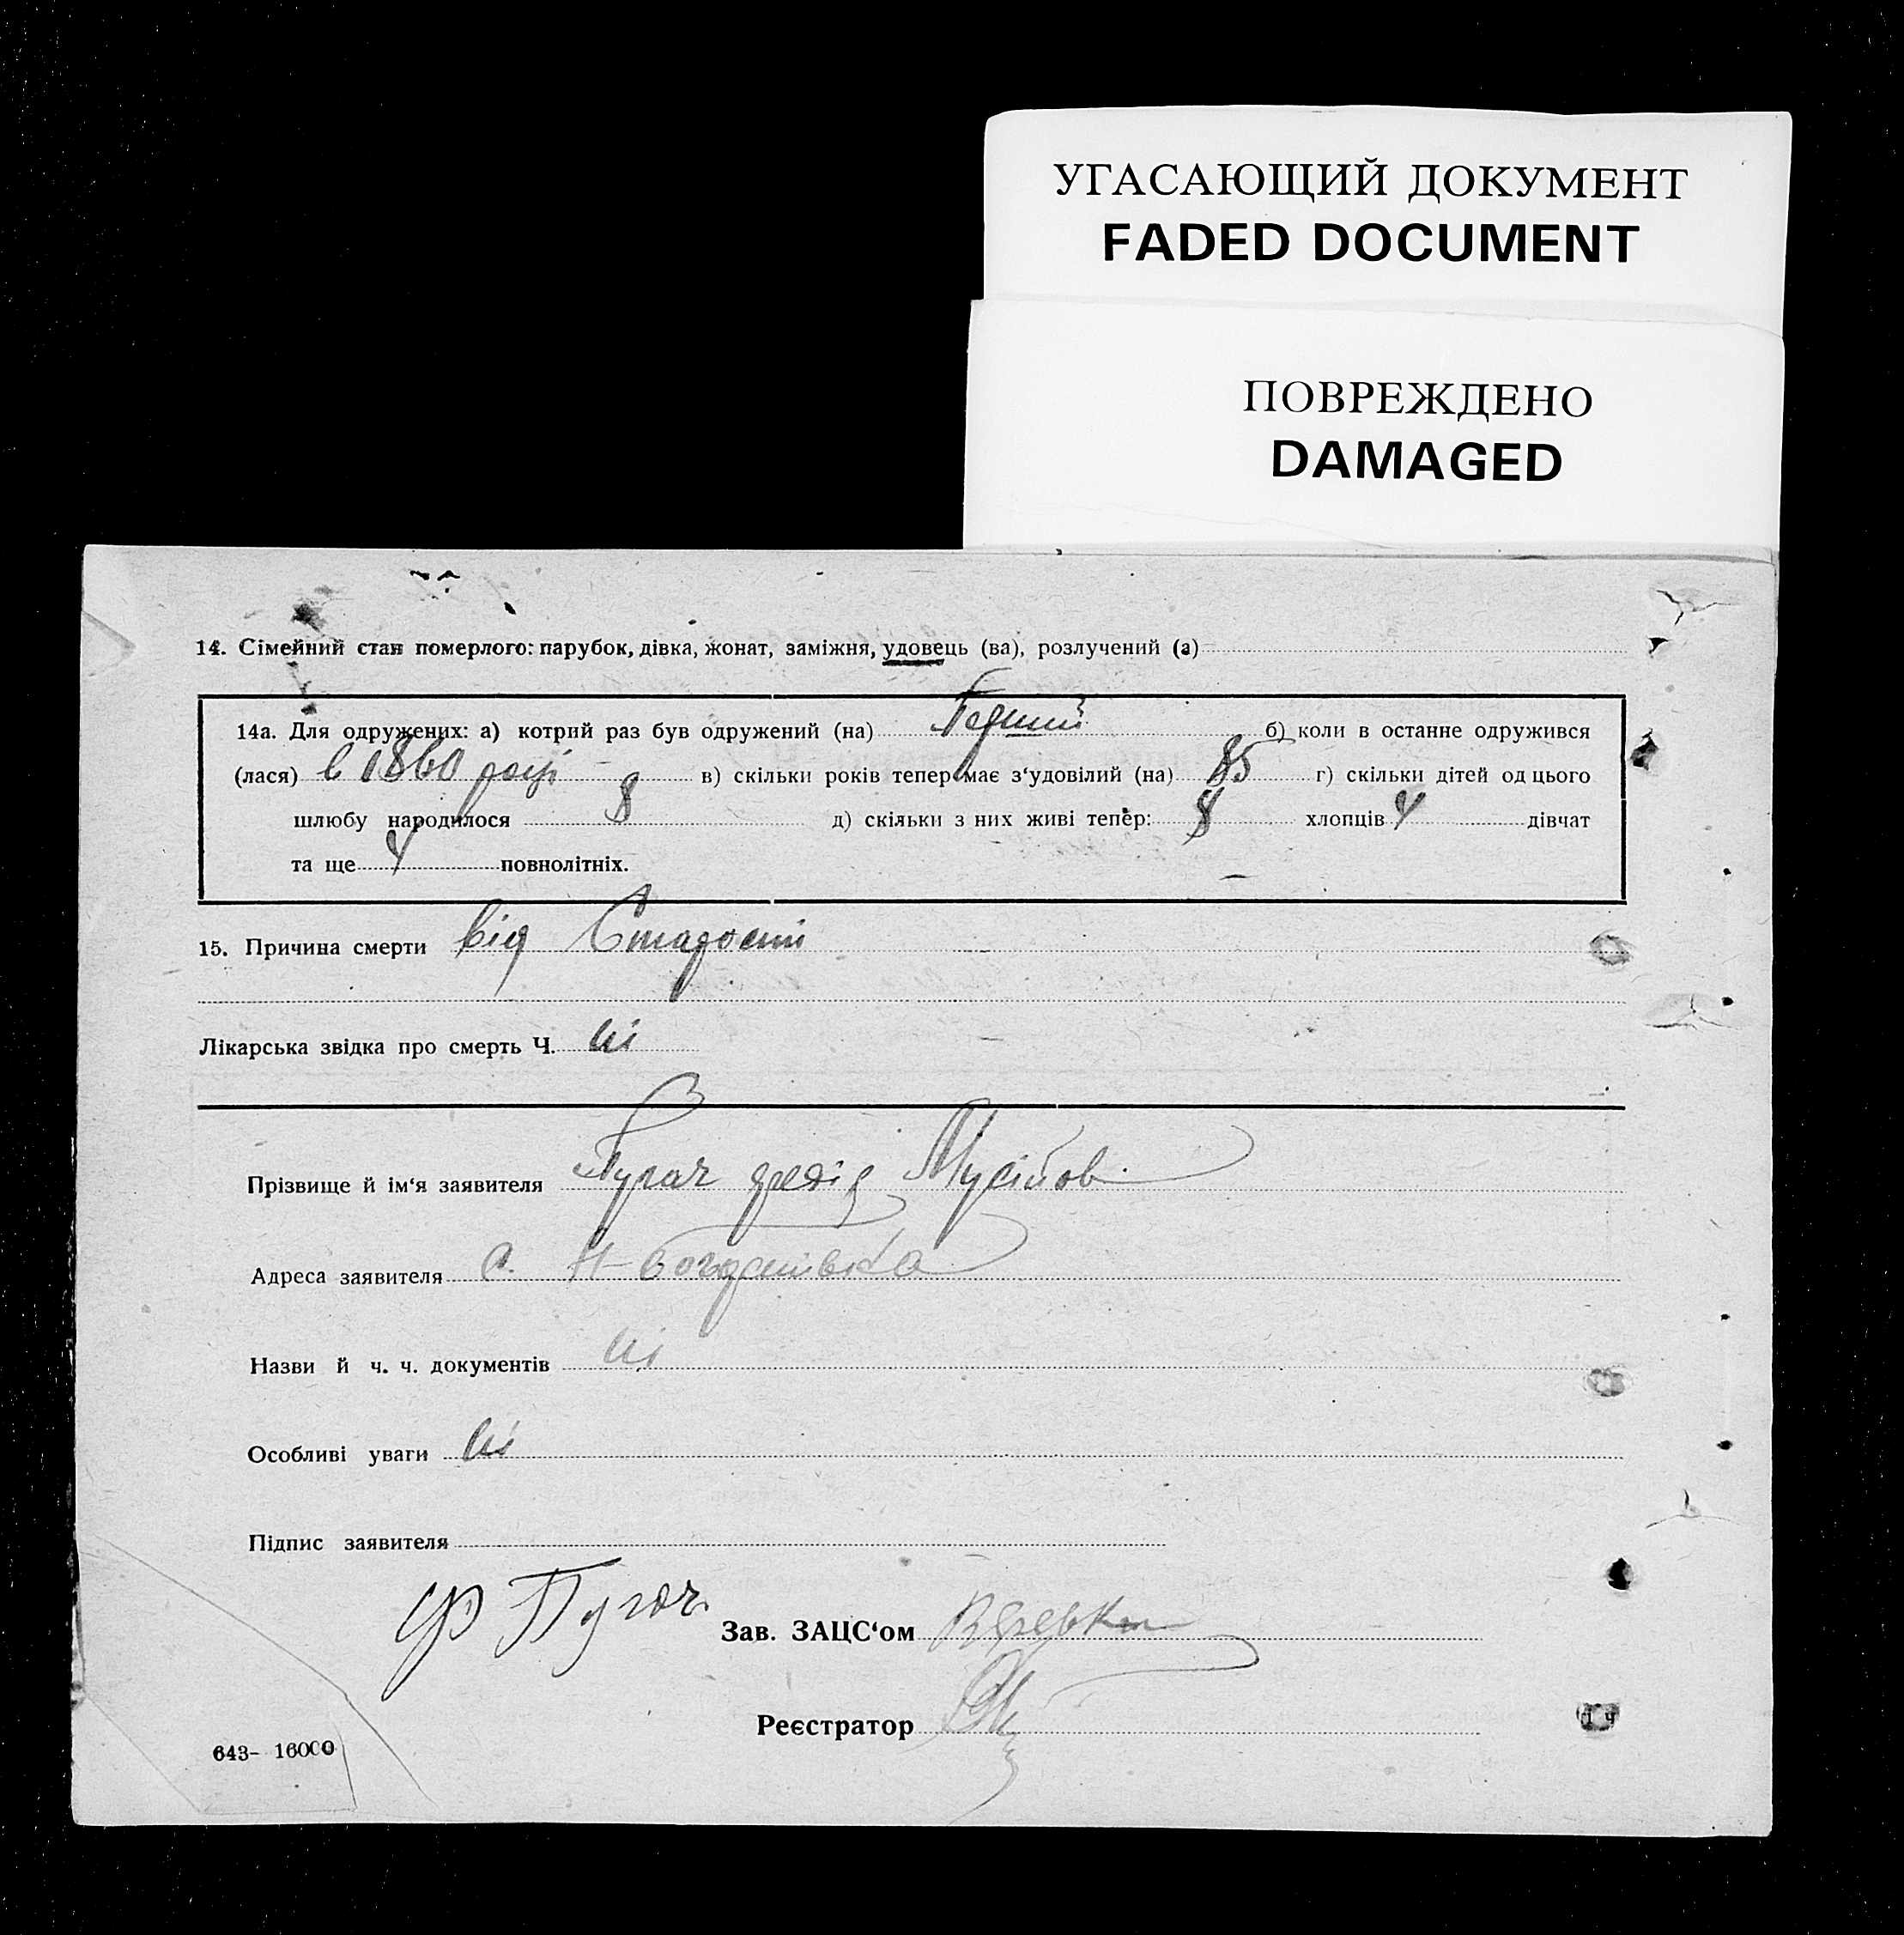 УГАСАЮЩИЙ ДОКУМЕНТ
FADED DOCUMENT
ПОВРЕЖДЕНО
DAMAGED
14. Сімейний стан померлого: парубок, дівка, жонат, заміжня, удовець (ва), розлучений (а)
14а. Для одружених: а) котрий раз був одружений (на) Перший б) коли в останне одружився
(лася) в 1860 році в) скільки років тепер має з‘удовілий (на) 85 г) скільки дітей од цього
шлюбу народилося 8 д) скільки з них живі тепер: 8 хлопців 4 дівчат
та ще 4 повнолітніх.
15. Причина смерти від Старости
Лікарська звідка про смерть Ч. ні
Прізвище й ім‘я заявителя Пугач Мусійов
Адреса заявителя с. Н-Богданівка
Назви й ч. ч. документів ні
Особливі уваги ні
Підпис заявителя
Ф Пугач
Зав. ЗАЦС‘ом
Реєстратор
643- 16000